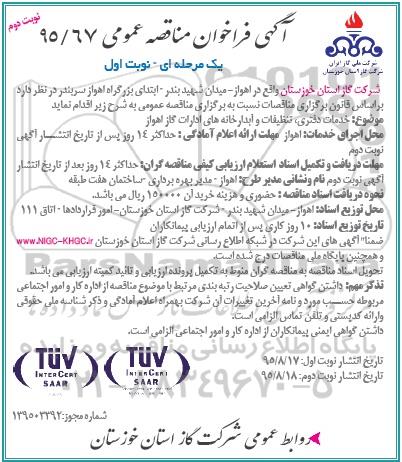 نوبت دوم
آگهی فراخوان مناقصه عمومی ۹۵/۶۷
یک مرحله ای - نوبت اول
شرکت ملی گاز ایران
شرکت گاز استان خوزستان
شرکت گاز استان خوزستان واقع در اهواز-میدان شهید بندر - ابتدای بزرگراه اهواز سربندر در نظر دارد
براساس قانون برگزاری مناقصات نسبت به برگزاری مناقصه عمومی به شرح زیر اقدام نماید
موضوع: خدمات دفتری، تنظیفات و آبدارخانه های ادارات گاز اهواز
محل اجرای خدمات: اهواز مهلت ارائه اعلام آمادگی: حداکثر ۱۴ روز پس از تاریخ انتشار آگهی
نوبت دوم
مهلت دریافت و تکمیل اسناد استعلام ارزیابی کیفی مناقصه گران: حداکثر ۱۴ روز بعد از تاریخ انتشار
آگهی نوبت دوم نام ونشانی مدیر طرح: اهواز - مدیر بهره برداری -ساختمان هفت طبقه
نحوه دریافت اسناد مناقصه: حضوری و هزینه خرید آن ۱۵۰۰۰۰ ریال می باشد.
محل توزیع اسناد: اهواز-میدان شهید بندر - شرکت گاز استان خوزستان-امور قراردادها - اتاق ۱۱۱
تاریخ توزیع اسناد: ۱۰ روز کاری پس از اتمام ارزیابی پیمانکاران
ضمنا" آگهی های این شرکت در شبکه اطلاع رسانی شرکت گاز استان خوزستان www.NIGC-KHGC.ir
و همچنین پایگاه ملی مناقصات درج شده است.
تحویل اسناد مناقصه به مناقصه گران منوط به تکمیل پرونده ارزیابی و تائید کمیته ارزیابی می باشد.
تذکر مهم: داشتن گواهی تعیین صلاحیت رتبه بندی مرتبط با موضوع مناقصه از اداره کار و امور اجتماعی
مربوطه حسب مورد و نامه آخرین تغییرات آن شرکت بهمراه اعلام آمادگی و ذکر شناسه ملی حقوقی
وارائه کدپستی و تلفن تماس الزامی است.
داشتن گواهی ایمنی پیمانکاران از اداره کار و امور اجتماعی الزامی است.
تاریخ انتشار نوبت اول: ۹۵/۸/۱۷
تاریخ انتشار نوبت دوم: ۹۵/۸/۱۸
TÜV
INTERCERT
SAAR
TÜV
INTERCERT
SAAR
شماره مجوز: ۱۳۹۵۰۳۳۹۲
روابط عمومی شرکت گاز استان خوزستان